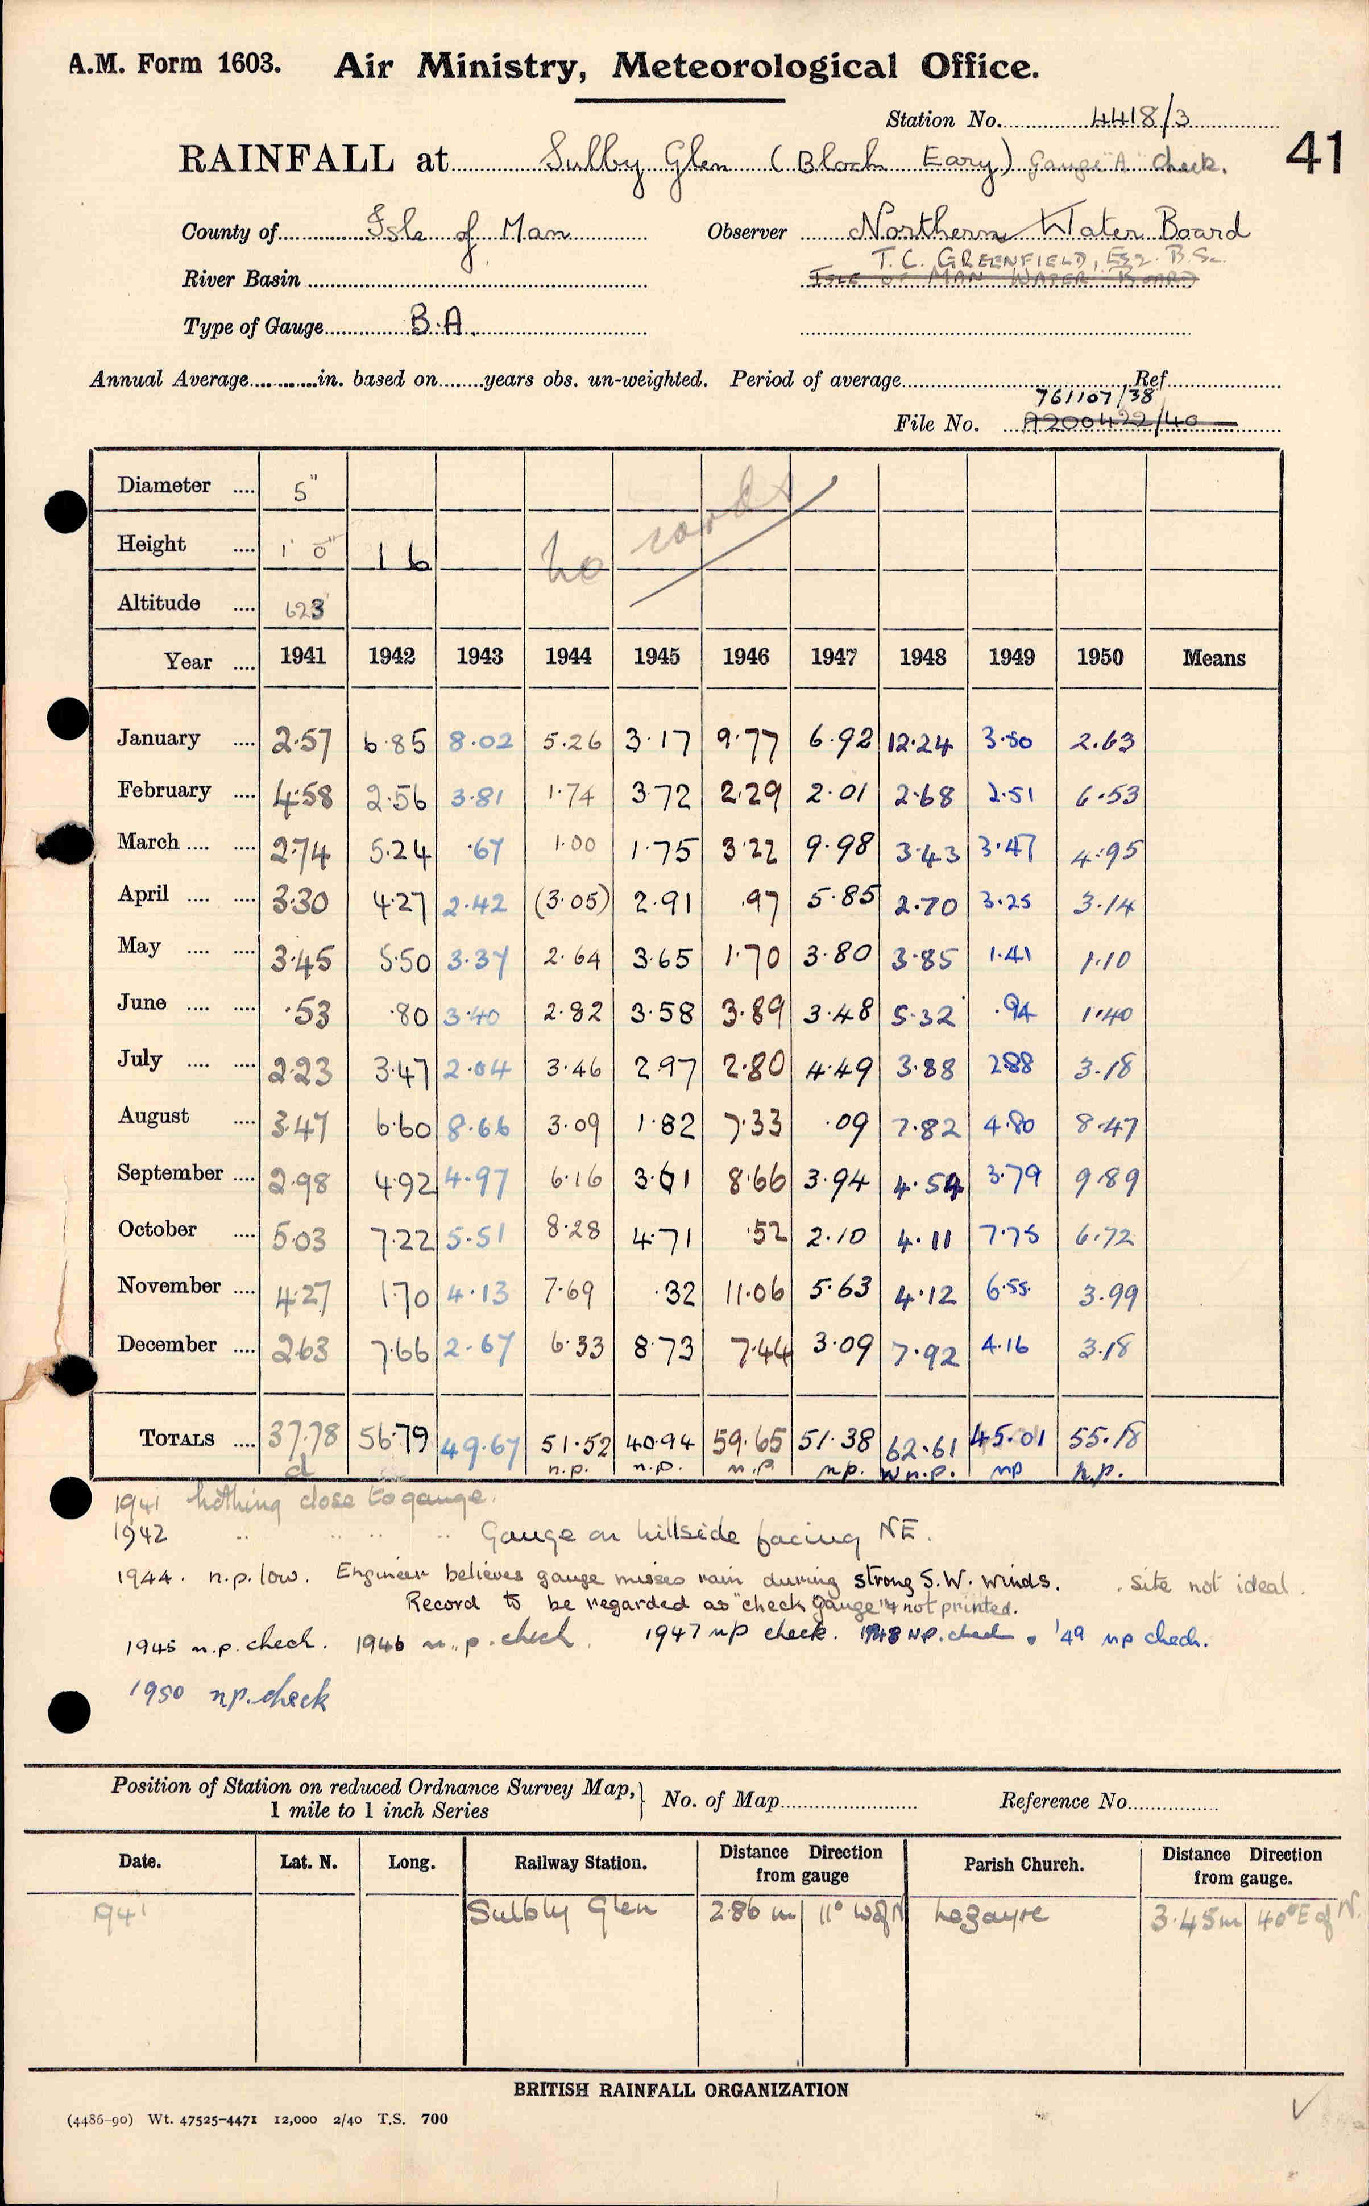 A.M. Form 1603. Air Ministry, Meteorological Office.
Station No. 4418/3
RAINFALL at Sulby Glen (Block Eary) Gauge "A" Check. 41
County of Isle of Man Observer Northern Water Board
T.C. GREENFIELD, Esq. B.Sc.
River Basin ISLE OF MAN WATER BOARD
Type of Gauge B.A.
Annual Average in. based on years obs. un-weighted. Period of average Ref
761107/38
File No. A200422/40
Diameter 5"
Height 1' 0" 1 6
no cards
Altitude 623
Year 1941 1942 1943 1944 1945 1946 1947 1948 1949 1950 Means
January 2.57 6.85 8.02 5.26 3.17 9.77 6.92 12.24 3.50 2.63
February 4.58 2.56 3.81 1.74 3.72 2.29 2.01 2.68 2.51 6.53
March 2.74 5.24 .67 1.00 1.75 3.22 9.98 3.43 3.47 4.95
April 3.30 4.27 2.42 (3.05) 2.91 .97 5.85 2.70 3.25 3.14
May 3.45 5.50 3.37 2.64 3.65 1.70 3.80 3.85 1.41 1.10
June .53 .80 3.40 2.82 3.58 3.89 3.48 5.32 .94 1.40
July 2.23 3.47 2.04 3.46 2.97 2.80 4.49 3.88 2.88 3.18
August 3.47 6.60 8.66 3.09 1.82 7.33 .09 7.82 4.80 8.47
September 2.98 4.92 4.97 6.16 3.61 8.66 3.94 4.54 3.79 9.89
October 5.03 7.22 5.51 8.28 4.71 .52 2.10 4.11 7.75 6.72
November 4.27 1.70 4.13 7.69 .32 11.06 5.63 4.12 6.55 3.99
December 2.63 7.66 2.67 6.33 8.73 7.44 3.09 7.92 4.16 3.18
TOTALS 37.78 56.79 49.67 51.52 40.94 59.65 51.38 62.61 45.01 55.18
d n.p. n.p. n.p n.p. W n.p. np n.p.
1941 Nothing close to gauge.
1942 " " " " Gauge on hillside facing NE.
1944. n.p. low. Engineer believes gauge misses rain during strong S.W. winds. Site not ideal.
Record to be regarded as "check gauge" & not printed.
1945 n.p. check. 1946 n.p. check. 1947 np check. 1948 NP. check. '49 np check.
1950 np. check
Position of Station on reduced Ordnance Survey Map, 1 mile to 1 inch Series No. of Map Reference No.
Date. Lat. N. Long. Railway Station. Distance Direction from gauge Parish Church. Distance Direction from gauge.
1941 Sulby Glen 2.86 m 11° W of N Lezayre 3.45 m 40° E of N.
BRITISH RAINFALL ORGANIZATION
(4486-90) Wt. 47525-4471 12,000 2/40 T.S. 700